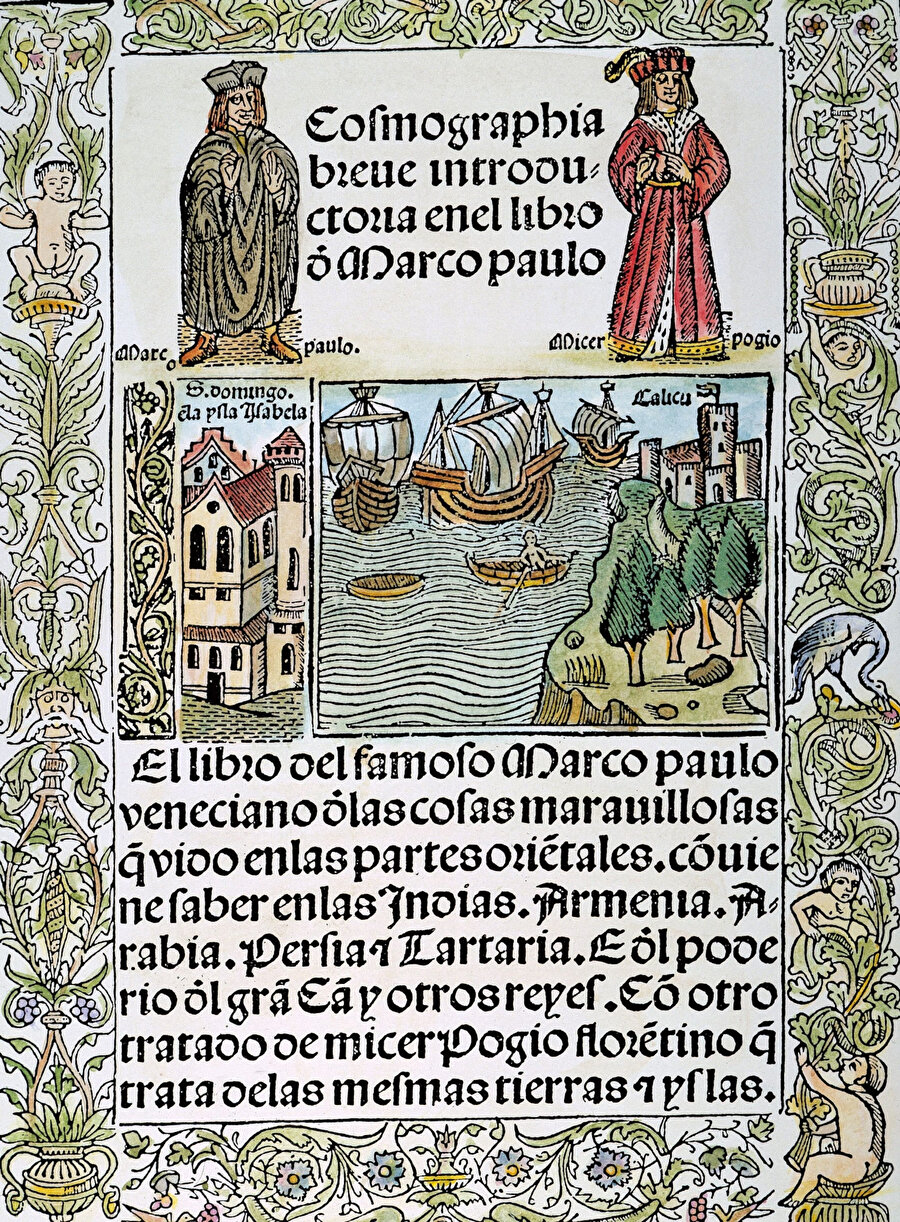 Cosmographia
breue introdu-
ctoria enel libro
d̄ Marco paulo
Marc
o
paulo.
Micer
pogio
S. domingo.
ẽla ysla Ysabela
Calicu
El libro del famoso Marco paulo
veneciano d̄las cosas marauillosas
q̄ vido enlas partes oriẽtales. cõuie
ne saber enlas Indias. Armenia. A-
rabia. Persia ⁊ Tartaria. E d̄l pode
rio d̄l grã Cã y otros reyes. Cõ otro
tratado de micer Pogio florẽtino q̄
trata delas mesmas tierras ⁊ yslas.